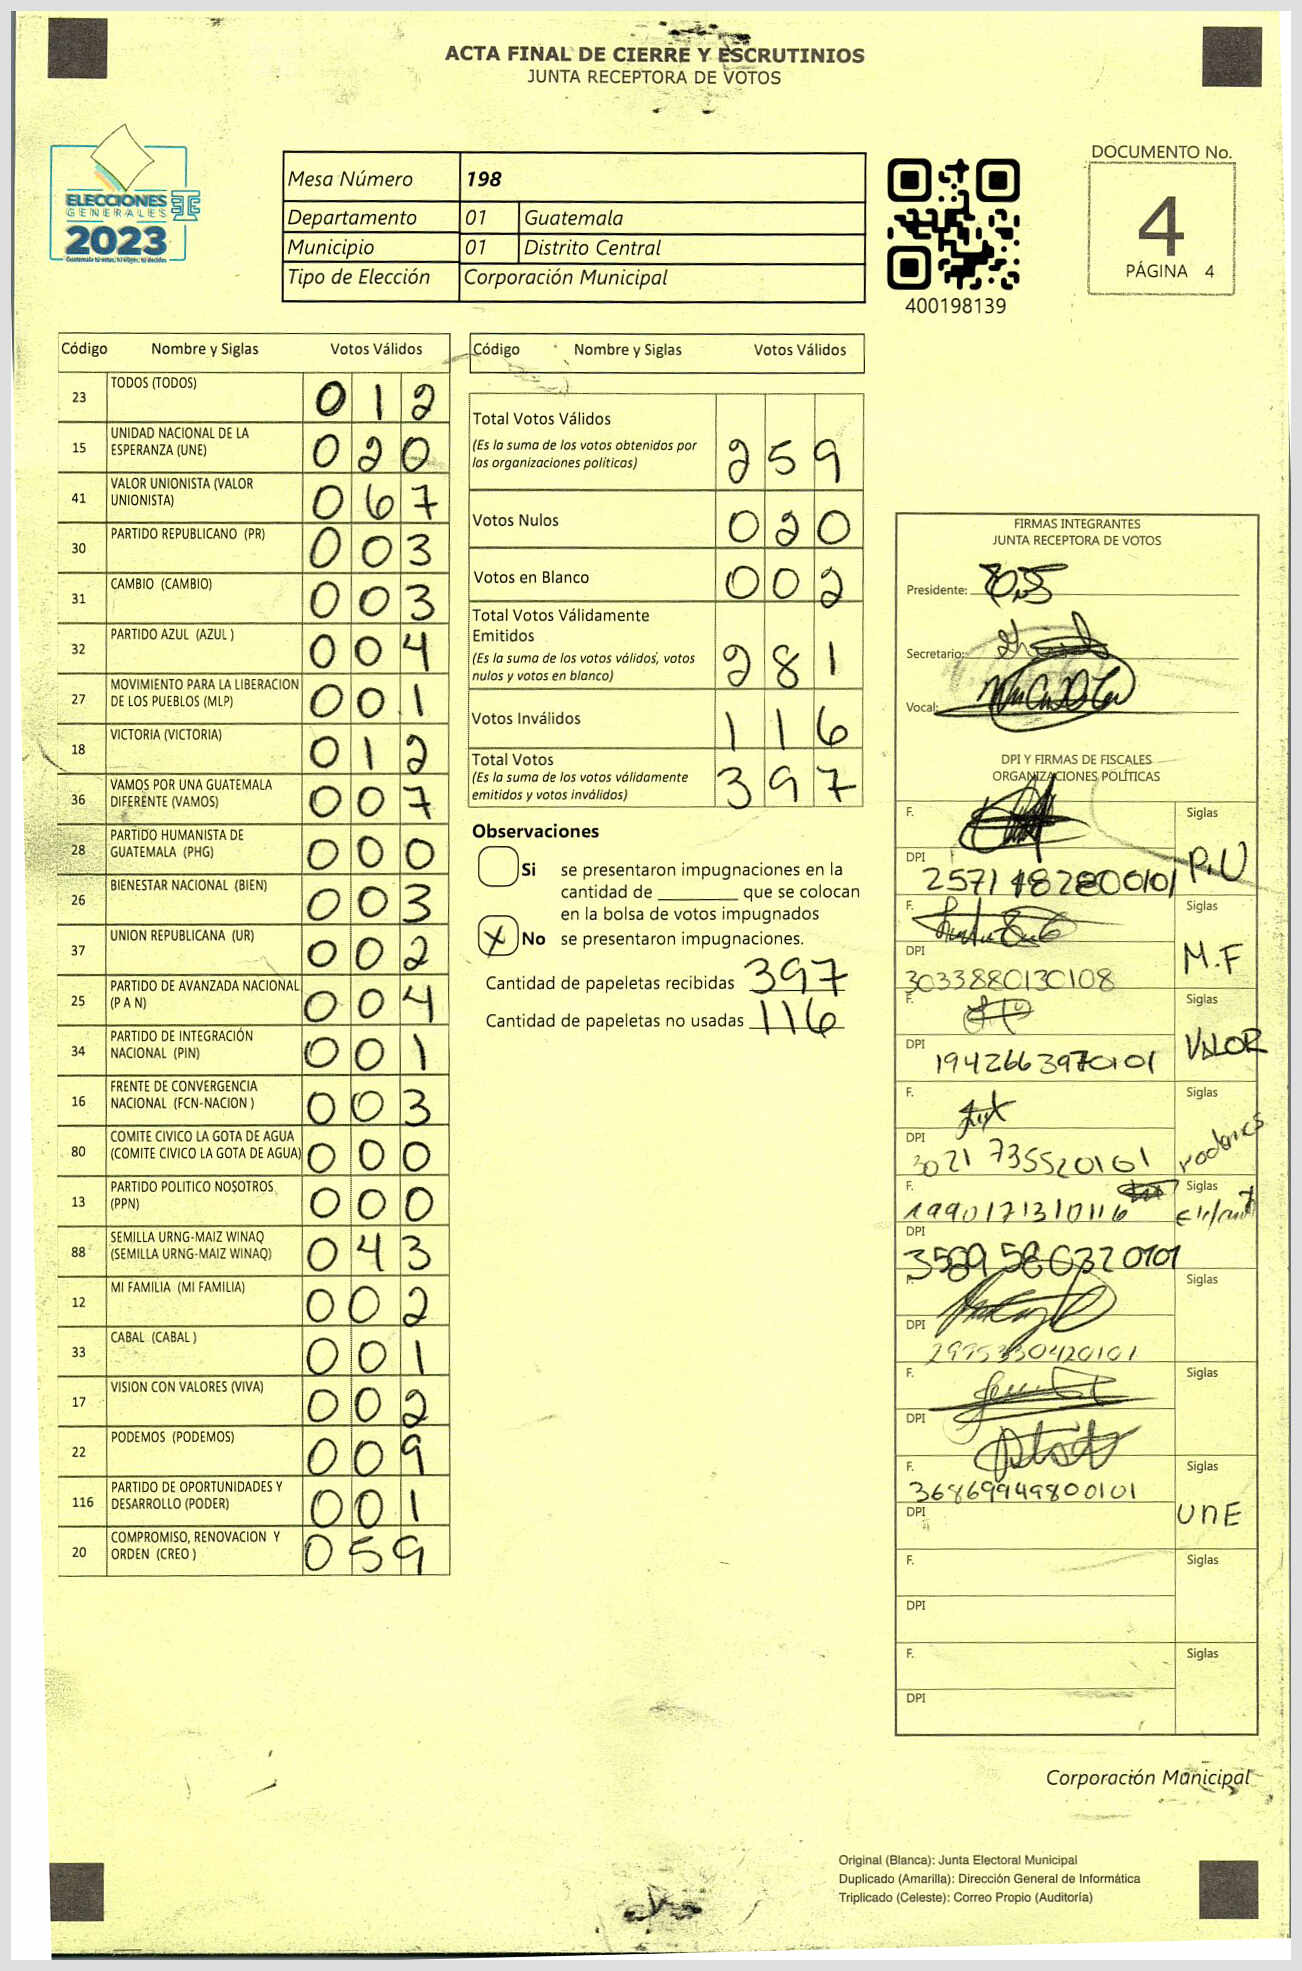 ACTA FINAL DE CIERRE Y ESCRUTINIOS
JUNTA RECEPTORA DE VOTOS
ELECCIONES
GENERALES
2023
Guatemala tú votas, tú eliges, tú decides
Mesa Número 198
Departamento 01 Guatemala
Municipio 01 Distrito Central
Tipo de Elección Corporación Municipal
400198139
DOCUMENTO No.
4
PÁGINA 4
Código Nombre y Siglas Votos Válidos
23 TODOS (TODOS) 0 1 2
15 UNIDAD NACIONAL DE LA
ESPERANZA (UNE) 0 2 0
41 VALOR UNIONISTA (VALOR
UNIONISTA) 0 6 7
30 PARTIDO REPUBLICANO (PR) 0 0 3
31 CAMBIO (CAMBIO) 0 0 3
32 PARTIDO AZUL (AZUL ) 0 0 4
27 MOVIMIENTO PARA LA LIBERACION
DE LOS PUEBLOS (MLP) 0 0 1
18 VICTORIA (VICTORIA) 0 1 2
36 VAMOS POR UNA GUATEMALA
DIFERENTE (VAMOS) 0 0 7
28 PARTIDO HUMANISTA DE
GUATEMALA (PHG) 0 0 0
26 BIENESTAR NACIONAL (BIEN) 0 0 3
37 UNION REPUBLICANA (UR) 0 0 2
25 PARTIDO DE AVANZADA NACIONAL
(P A N) 0 0 4
34 PARTIDO DE INTEGRACIÓN
NACIONAL (PIN) 0 0 1
16 FRENTE DE CONVERGENCIA
NACIONAL (FCN-NACION ) 0 0 3
80 COMITE CIVICO LA GOTA DE AGUA
(COMITE CIVICO LA GOTA DE AGUA) 0 0 0
13 PARTIDO POLITICO NOSOTROS
(PPN) 0 0 0
88 SEMILLA URNG-MAIZ WINAQ
(SEMILLA URNG-MAIZ WINAQ) 0 4 3
12 MI FAMILIA (MI FAMILIA) 0 0 2
33 CABAL (CABAL ) 0 0 1
17 VISION CON VALORES (VIVA) 0 0 2
22 PODEMOS (PODEMOS) 0 0 9
116 PARTIDO DE OPORTUNIDADES Y
DESARROLLO (PODER) 0 0 1
20 COMPROMISO, RENOVACION Y
ORDEN (CREO ) 0 5 9
Código Nombre y Siglas Votos Válidos
Total Votos Válidos
(Es la suma de los votos obtenidos por
las organizaciones políticas) 2 5 9
Votos Nulos 0 2 0
Votos en Blanco 0 0 2
Total Votos Válidamente
Emitidos
(Es la suma de los votos válidos, votos
nulos y votos en blanco) 2 8 1
Votos Inválidos 1 1 6
Total Votos
(Es la suma de los votos válidamente
emitidos y votos inválidos) 3 9 7
Observaciones
Si se presentaron impugnaciones en la
cantidad de ________ que se colocan
en la bolsa de votos impugnados
X No se presentaron impugnaciones.
Cantidad de papeletas recibidas 397
Cantidad de papeletas no usadas 116
FIRMAS INTEGRANTES
JUNTA RECEPTORA DE VOTOS
Presidente:
Secretario:
Vocal:
DPI Y FIRMAS DE FISCALES
ORGANIZACIONES POLÍTICAS
F. Siglas
P.U
DPI
F. Siglas
M.F
DPI
3033880130108
F. Siglas
VALOR
DPI
1942663970101
F. Siglas
DPI
3021 735520101
F. Siglas
1990171310116
DPI
F. Siglas
DPI
2995330420101
F. Siglas
DPI
F. Siglas
368699499800101
UNE
DPI
F. Siglas
DPI
F. Siglas
DPI
Corporación Municipal
Original (Blanca): Junta Electoral Municipal
Duplicado (Amarilla): Dirección General de Informática
Triplicado (Celeste): Correo Propio (Auditoría)